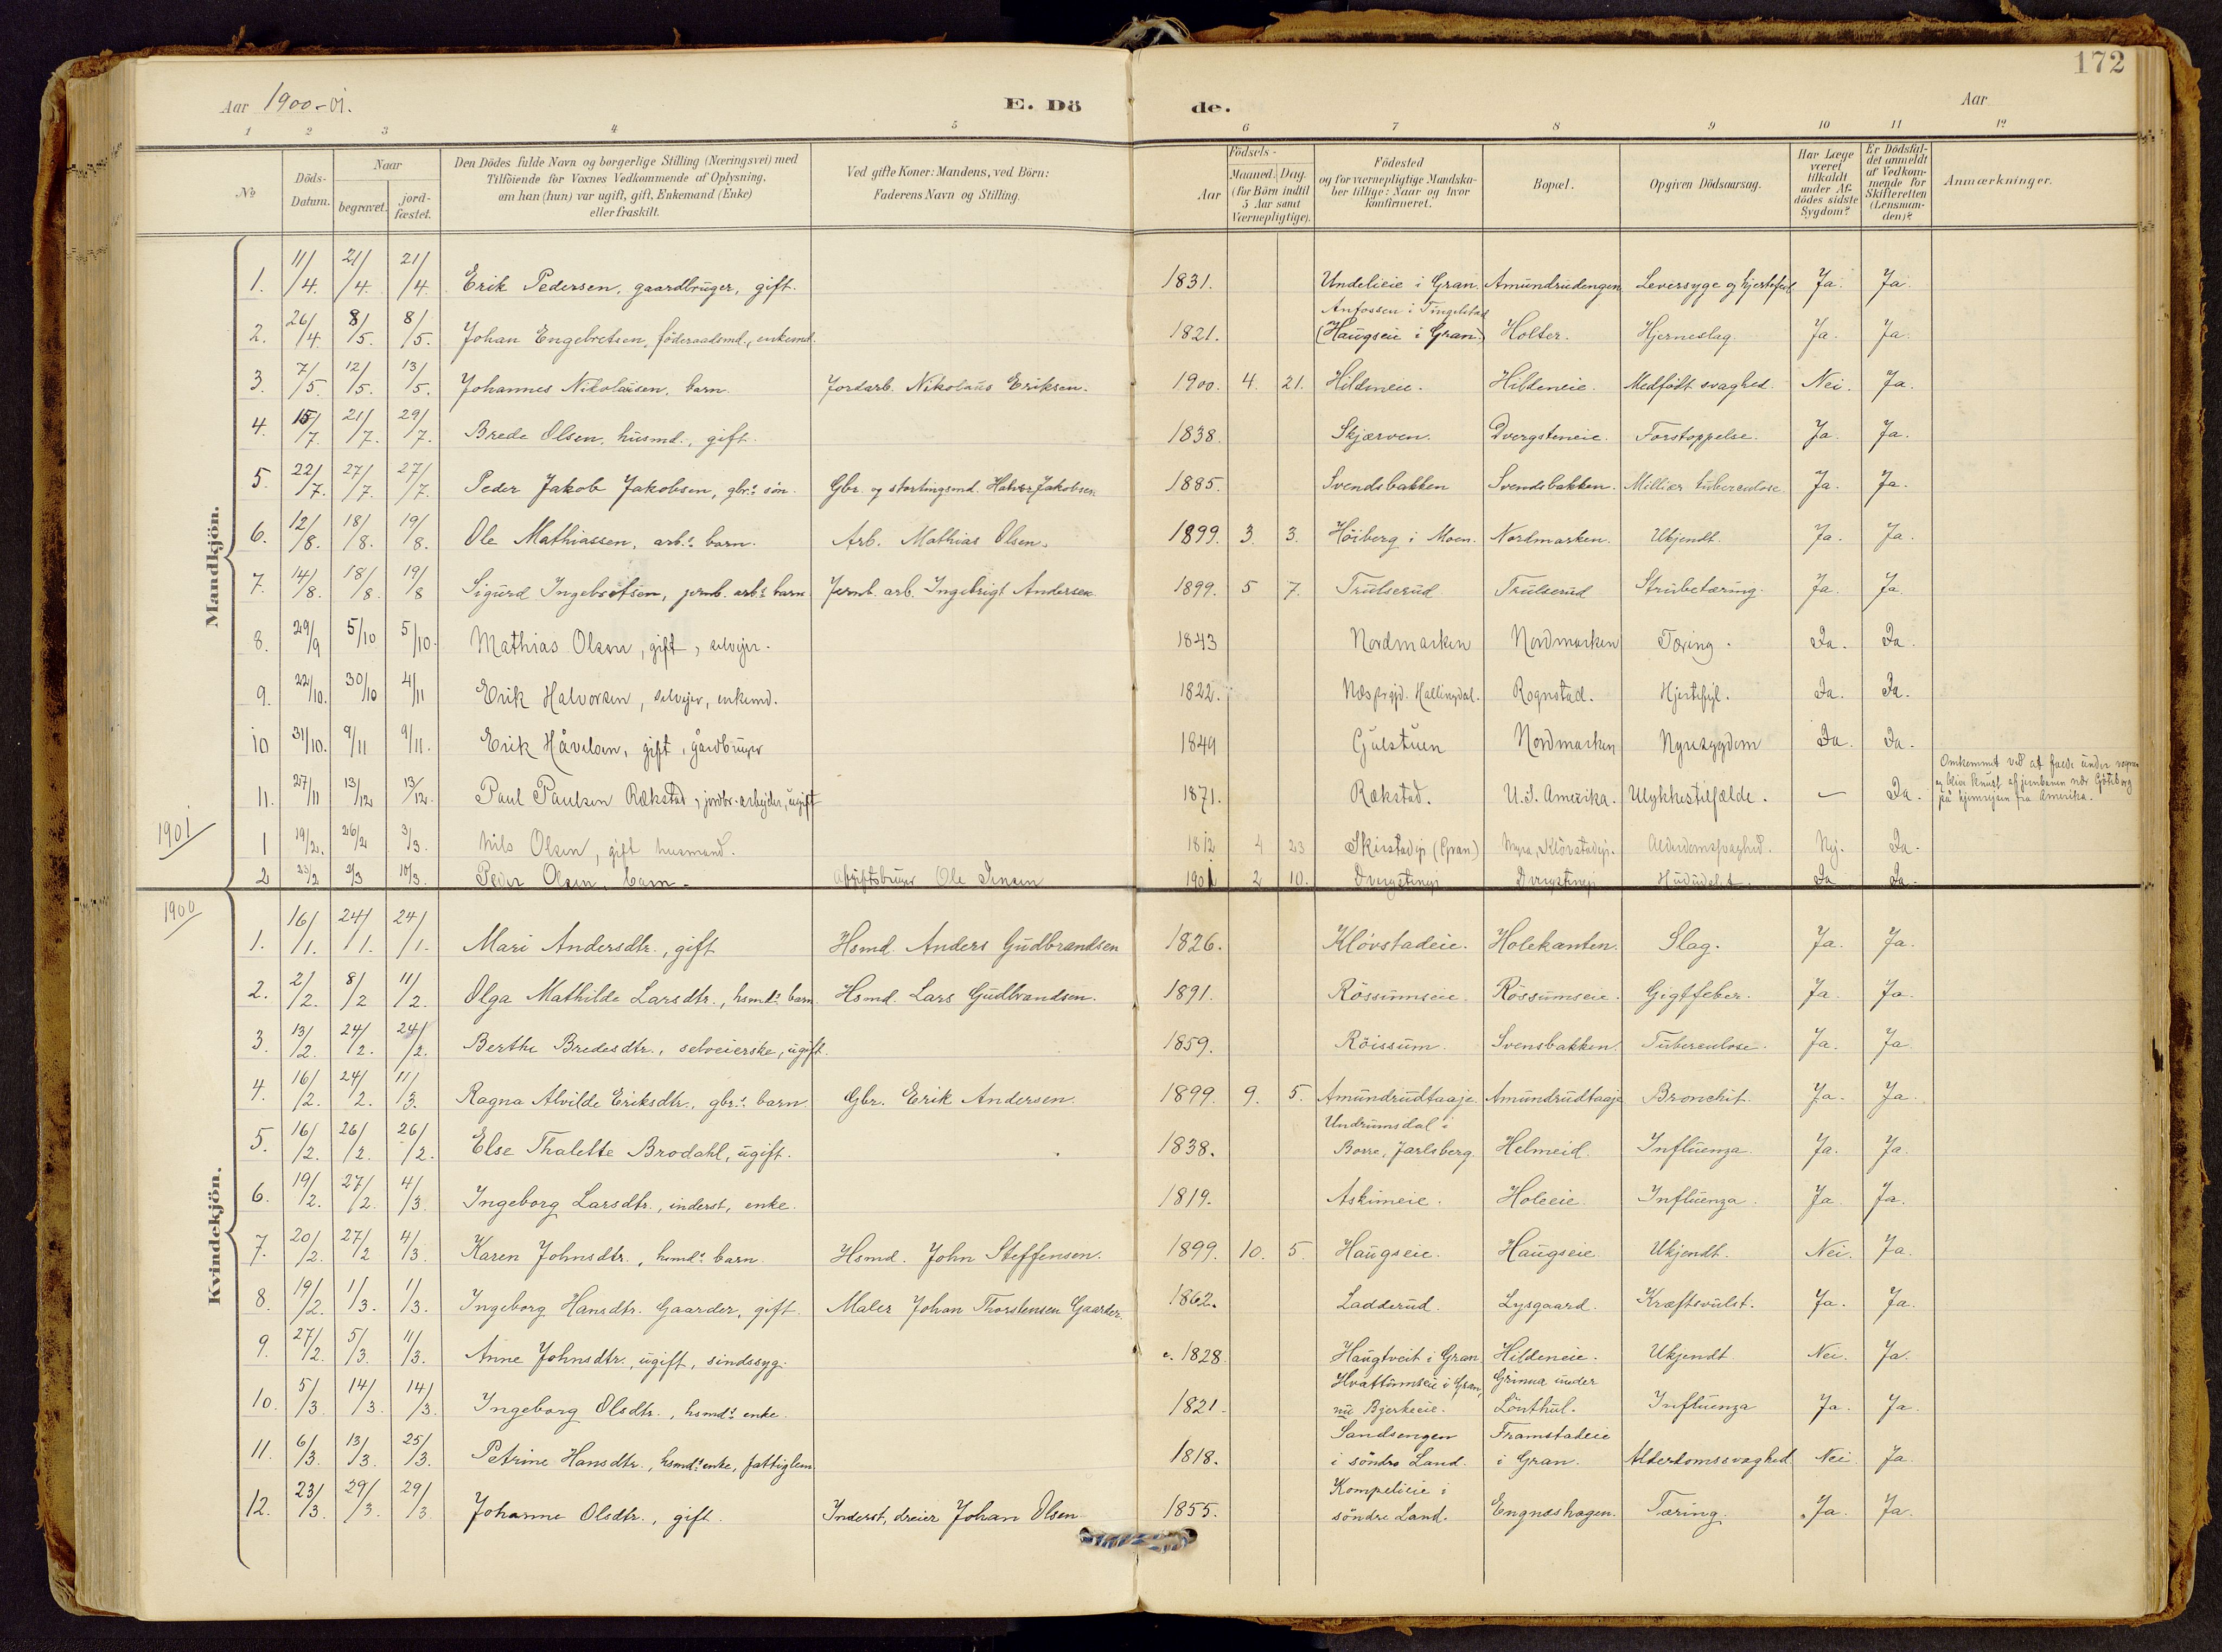 172
Aar 1900-01. E. Dö de. Aar
1 2 3 4 5 6 7 8 9 10 11 12
№ Döds-Datum. Naar begravet. jord-fæstet. Den Dödes fulde Navn og borgerlige Stilling (Næringsvei) med Tilföiende for Voxnes Vedkommende af Oplysning, om han (hun) var ugift, gift, Enkemand (Enke) eller fraskilt. Ved gifte Koner: Mandens, ved Börn: Faderens Navn og Stilling. Födsels- Aar Maaned. Dag. (for Börn indtil 5 Aar samt Værnepligtige). Födested og for værnepligtige Mandskaber tillige: Naar og hvor konfirmeret. Bopæl. Opgiven Dödsaarsag. Har Læge været tilkaldt under Afdödes sidste Sygdom? Er Dödsfaldet anmeldt af Vedkommende for Skifteretten (Lensmanden)? Anmærkninger.
Mandkjön.
1. 11/4. 21/4. 21/4. Erik Pedersen, gaardbruger, gift. 1831. Undelieie i Gran. Amundrudengen Leversyge og hjertefeil Ja. Ja.
2. 26/4. 8/5. 8/5. Johan Engebretsen, föderaadsmd., enkemd. 1821. Anfossen i Tingelstad (Haugseie i Gran.) Holter. Hjerneslag. Ja. Ja.
3. 7/5. 12/5. 13/5. Johannes Nikolausen, barn. Jordarb. Nikolaus Eriksen. 1900. 4. 21. Hildeneie. Hildeneie. Medfödt svaghed. Nei. Ja.
4. 15/7. 21/7. 29/7. Brede Olsen, husmd., gift. 1838. Skjærven. Dvergsteneie. Forstoppelse. Ja. Ja.
5. 22/7. 27/7. 27/7. Peder Jakob Jakobsen, gbr.s sön. Gbr. og stortingsmd. Halvor Jakobsen 1885. Svendsbakken Svendsbakken. Milliær tuberculose. Ja. Ja.
6. 12/8. 18/8. 19/8. Ole Mathiassen, arb.s barn. Arb. Mathias Olsen. 1899. 3. 3. Höiberg i Moen. Nordmarken. Ukjendt. Ja. Ja.
7. 14/8. 18/8. 19/8 Sigurd Ingebretsen, jernb. arb.s barn Jernb. arb. Ingebrigt Andersen. 1899. 5 7. Trulserud Trulserud Strubetæring. Ja. Ja.
8. 29/9 5/10 5/10. Mathias Olsen, gift, selvejer. 1843 Nordmarken Nordmarken Tæring. Ja. Ja.
9. 22/10. 30/10 4/11 Erik Halvorsen, selvejer, enkemd. 1822. Næs prgjd. Hallingdal. Rognstad. Hjertefejl. Ja. Ja.
10 31/10. 9/11 9/11. Erik Håvelsen, gift, gårdbruger 1849 Gulstuen Nordmarken Nyresygdom Ja. Ja.
11. 27/11 13/12 13/12. Paul Paulsen Rækstad, jordbr. arbejder, ugift 1871. Rækstad. U.S. Amerika. Ulykkestilfælde. — Ja. Omkommet ved at falde under vognen og blive knust af jernbanen nær Göteborg på hjemrejsen fra Amerika.
1901
1 19/2. 26/2 3/3. Nils Olsen, gift husmand. 1812 4 23 Skirstadej (Gran) Myra, Klövstadej. Alderdomssvaghed. Nej. Ja.
2 23/2 3/3 10/3. Peder Olsen, barn. Afgiftsbruger Ole Jensen 1901 2 10. Dvergstenej Dvergstenej Ja Ja.
1900
Kvindekjön.
1. 16/1. 24/1. 24/1. Mari Andersdtr., gift Hsmd. Anders Gudbrandsen 1826. Klövstadeie. Holekanten. Slag. Ja. Ja.
2. 2/2. 8/2 11/2. Olga Mathilde Larsdtr., hsmd.s barn. Hsmd. Lars Gudbrandsen. 1891. Rössumseie. Rössumseie. Gigtfeber. Ja. Ja.
3. 13/2. 24/2. 24/2. Berthe Bredesdtr., selveierske, ugift. 1859. Röissum. Svensbakken. Tuberculose. Ja. Ja
4. 16/2. 24/2. 11/3. Ragna Alvilde Eriksdtr., gbr.s barn. Gbr. Erik Andersen. 1899. 9. 5. Amundrudtaaje. Amundrudtaaje Bronchit. Ja. Ja.
5. 16/2. 26/2. 26/2. Else Thalette Brodahl, ugift. 1838. Undrumsdal i Borre, Jarlsberg. Helmeid. Influenza. Ja. Ja.
6. 19/2. 27/2. 4/3. Ingeborg Larsdtr., inderst, enke. 1819. Askimeie. Holeeie. Influenza. Ja Ja.
7. 20/2. 27/2 4/3. Karen Johnsdtr., hsmd.s barn. Hsmd. John Steffensen. 1899. 10. 5. Haugseie. Haugseie Ukjendt. Nei. Ja.
8. 19/2. 1/3. 1/3. Ingeborg Hansdtr. Gaarder, gift. Maler Johan Thorstensen Gaarder. 1862. Ladderud. Lysgaard. Kræftsvulst. Ja. Ja.
9. 27/2. 5/3. 11/3. Anne Johnsdtr., ugift, sindssyg. c. 1828. Haugtveit i Gran Hildeneie. Ukjendt Nei. Ja.
10. 5/3. 14/3. 14/3. Ingeborg Olsdtr., hsmd.s enke. 1821. Hvattumseie i Gran, nu Bjerkeeie. Grinna under Lönthul. Influenza Ja. Ja.
11. 6/3. 13/3. 25/3. Petrine Hansdtr., hsmd.s enke, fattiglem 1818. Sandsengen i söndre Land. Framstadeie i Gran. Alderdomssvaghed Nei. Ja.
12. 23/3. 29/3. 29/3. Johanne Olsdtr., gift. Inderst, dreier Johan Olsen 1855. Kompelieie i söndre Land. Engnæshagen. Tæring. Ja. Ja.